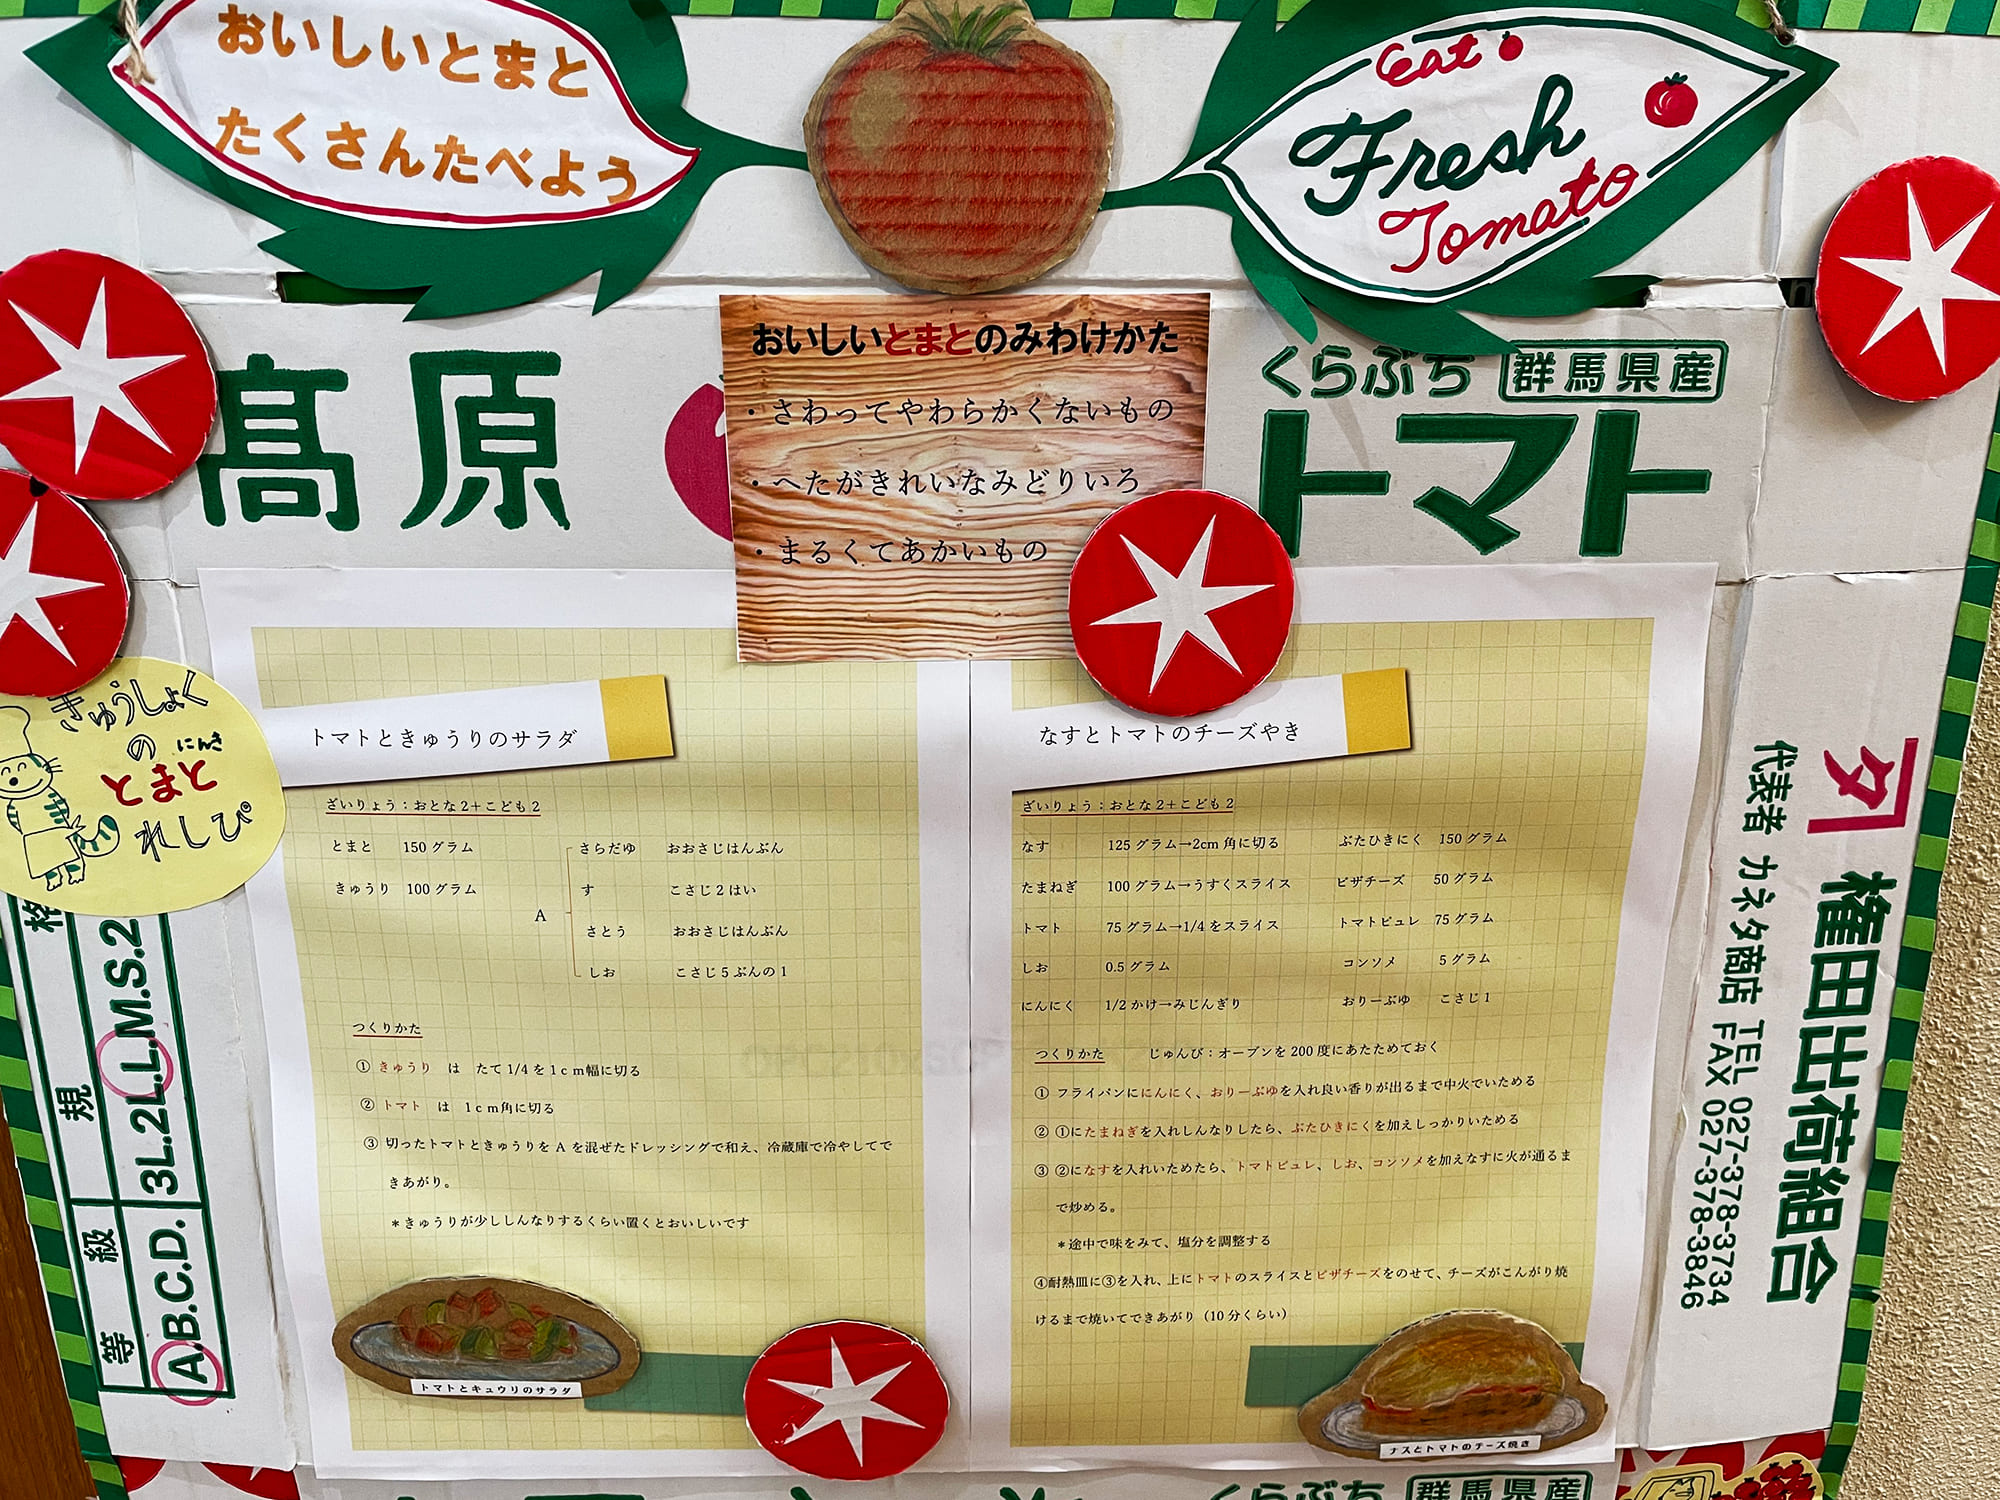 おいしいとまと
たくさんたべよう
eat
Fresh
Tomato
高原
おいしいとまとのみわけかた
・さわってやわらかくないもの
・へたがきれいなみどりいろ
・まるくてあかいもの
くらぶち 群馬県産
トマト
きゅうしょく
の にんき
とまと
れしぴ
トマトときゅうりのサラダ
ざいりょう：おとな2＋こども2
とまと 150グラム
きゅうり 100グラム
A
さらだゆ おおさじはんぶん
す こさじ2はい
さとう おおさじはんぶん
しお こさじ5ぶんの1
つくりかた
① きゅうり は たて1/4を1cm幅に切る
② トマト は 1cm角に切る
③ 切ったトマトときゅうりを A を混ぜたドレッシングで和え、冷蔵庫で冷やしてで
きあがり。
＊きゅうりが少ししんなりするくらい置くとおいしいです
トマトとキュウリのサラダ
なすとトマトのチーズやき
ざいりょう：おとな2＋こども2
なす 125グラム→2cm角に切る ぶたひきにく 150グラム
たまねぎ 100グラム→うすくスライス ピザチーズ 50グラム
トマト 75グラム→1/4をスライス トマトピュレ 75グラム
しお 0.5グラム コンソメ 5グラム
にんにく 1/2かけ→みじんぎり おりーぶゆ こさじ1
つくりかた じゅんび：オーブンを200度にあたためておく
① フライパンににんにく、おりーぶゆを入れ良い香りが出るまで中火でいためる
② ①にたまねぎを入れしんなりしたら、ぶたひきにくを加えしっかりいためる
③ ②になすを入れいためたら、トマトピュレ、しお、コンソメを加えなすに火が通るま
で炒める。
＊途中で味をみて、塩分を調整する
④耐熱皿に③を入れ、上にトマトのスライスとピザチーズをのせて、チーズがこんがり焼
けるまで焼いてできあがり（10分くらい）
ナスとトマトのチーズ焼き
タ
権田出荷組合
代表者 カネタ商店 TEL 027-378-3734
FAX 027-378-3846
等級 A.B.C.D.
規格 3L.2L.L.M.S.2
くらぶち 群馬県産